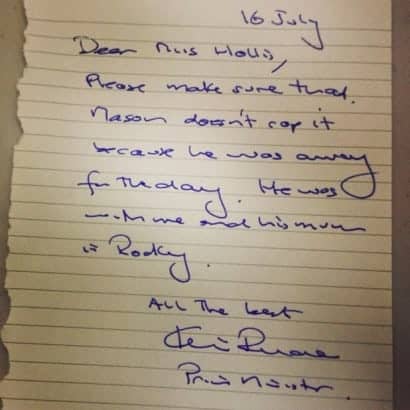 16 July
Dear Miss Hollis,
Please make sure that
Mason doesn't cop it
because he was away
for the day. He was
with me and his mum
in Rocky.
All the best
Kevin Rudd
Prime Minister.